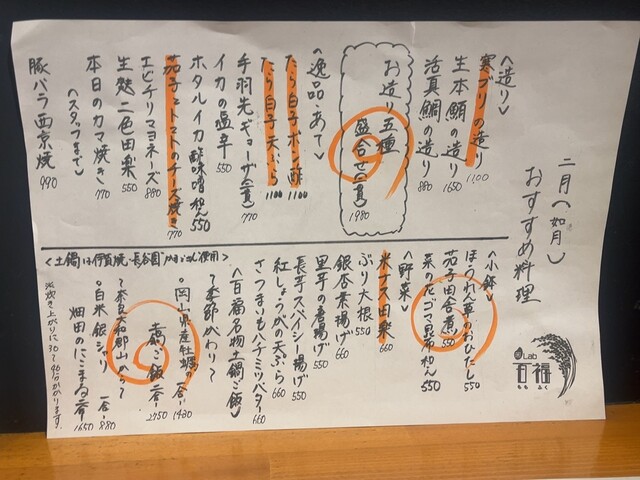 二月(如月)
おすすめ料理
Lab
百福
ももふく
<造り>
寒ブリの造り 1100
生本鮪の造り 1650
活真鯛の造り 880
お造り五種
盛合せ(一貫) 1980
<逸品・あて>
たら白子ポン酢 1100
たら白子天ぷら 1100
手羽先ギョーザ(二貫) 770
イカの塩辛 550
ホタルイカ酢味噌和え 550
茄子とトマトのチーズ焼き 770
エビチリマヨネーズ 880
生麩二色田楽 550
本日のカマ焼き 770
<スタッフまで>
豚バラ西京焼 990
<小鉢>
ほうれん草のおひたし 550
茄子田舎煮 550
菜の花ゴマ昆布和え 550
<野菜>
米ナス田楽 660
ぶり大根 550
銀杏素揚げ 660
里芋の唐揚げ 550
長芋スパイシー揚げ 550
紅しょうがの天ぷら 660
さつまいもハチミツバター 660
<百福名物土鍋ご飯>
〜季節がわり〜
。岡山県産牡蠣の 一合 1430
土鍋ご飯 二合 2750
〜奈良大和郡山から〜
。白米 銀シャリ 一合 880
畑田のにこまる 二合 1650
※炊き上がりに30〜40分かかります。
<土鍋は伊賀焼・長谷園"かまどさん"使用>